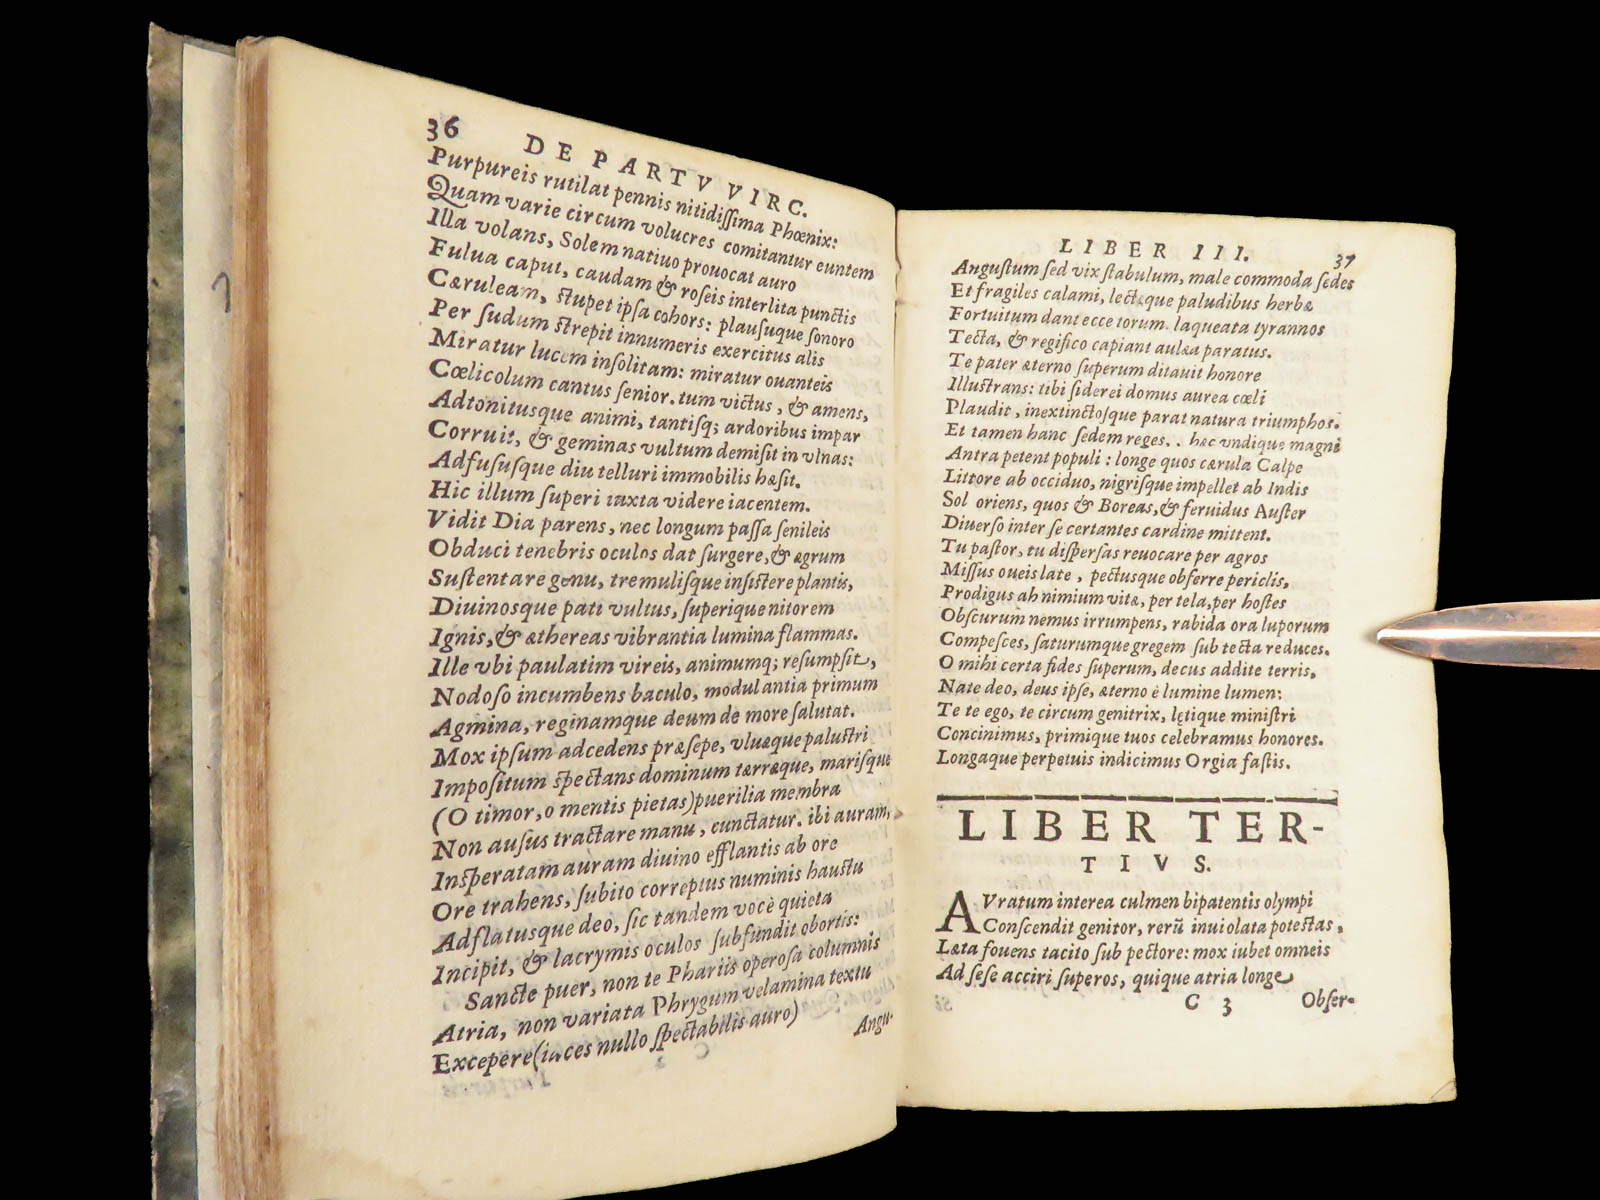 36
DE PARTV VIRC.
Purpureis rutilat pennis nitidiſſima Phœnix:
Quam varie circum volucres comitantur euntem
Illa volans, Solem natiuo prouocat auro
Fulua caput, caudam & roſeis interlita punctis
Cæruleam, ſtupet ipſa cohors: plauſuque ſonoro
Per ſudum ſtrepit innumeris exercitus alis
Miratur lucem inſolitam: miratur ouanteis
Cœlicolum cantus ſenior. tum victus, & amens,
Adtonitusque animi, tantiſq; ardoribus impar
Corruit, & geminas vultum demiſit in vlnas:
Adfuſuſque diu telluri immobilis hæſit.
Hic illum ſuperi iuxta videre iacentem.
Vidit Dia parens, nec longum paſſa ſenileis
Obduci tenebris oculos dat ſurgere, & ægrum
Suſtentare genu, tremuliſque inſiſtere plantis,
Diuinosque pati vultus, ſuperique nitorem
Ignis, & æthereas vibrantia lumina flammas.
Ille vbi paulatim vireis, animumq; reſumpſit,
Nodoſo incumbens baculo, modulantia primum
Agmina, reginamque deum de more ſalutat.
Mox ipſum adcedens præſepe, vluæque paluſtri
Impoſitum ſpectans dominum tærræque, mariſque
(O timor, o mentis pietas) puerilia membra
Non auſus tractare manu, cunctatur. ibi auram,
Inſperatam auram diuino efflantis ab ore
Ore trahens, ſubito correptus numinis hauſtu
Adflatusque deo, ſic tandem voce quieta
Incipit, & lacrymis oculos ſubfundit obortis:
Sancte puer, non te Phariis operoſa columnis
Atria, non variata Phrygum velamina textu
Excepere (iaces nullo ſpectabilis auro)
Angu-
LIBER III.
37
Anguſtum ſed vix ſtabulum, male commoda ſedes
Et fragiles calami, lectæque paludibus herbæ
Fortuitum dant ecce torum. laqueata tyrannos
Tecta, & regifico capiant aulæa paratus.
Te pater æterno ſuperum ditauit honore
Illuſtrans: tibi ſiderei domus aurea cœli
Plaudit, inextinctoſque parat natura triumphos.
Et tamen hanc ſedem reges.. hæc vndique magni
Antra petent populi: longe quos cærula Calpe
Littore ab occiduo, nigriſque impellet ab Indis
Sol oriens, quos & Boreas, & feruidus Auſter
Diuerſo inter ſe certantes cardine mittent.
Tu paſtor, tu diſperſas reuocare per agros
Miſſus oueis late, pectusque obferre periclis,
Prodigus ah nimium vitæ, per tela, per hoſtes
Obſcurum nemus irrumpens, rabida ora luporum
Compeſces, ſaturumque gregem ſub tecta reduces.
O mihi certa fides ſuperum, decus addite terris,
Nate deo, deus ipſe, æterno è lumine lumen:
Te te ego, te circum genitrix, lętique miniſtri
Concinimus, primique tuos celebramus honores.
Longaque perpetuis indicimus Orgia faſtis.
LIBER TER-
TIVS.
AVratum interea culmen bipatentis olympi
Conſcendit genitor, rerū inuiolata poteſtas,
Læta fouens tacito ſub pectore: mox iubet omneis
Ad ſeſe acciri ſuperos, quique atria longe
C 3
Obſer-